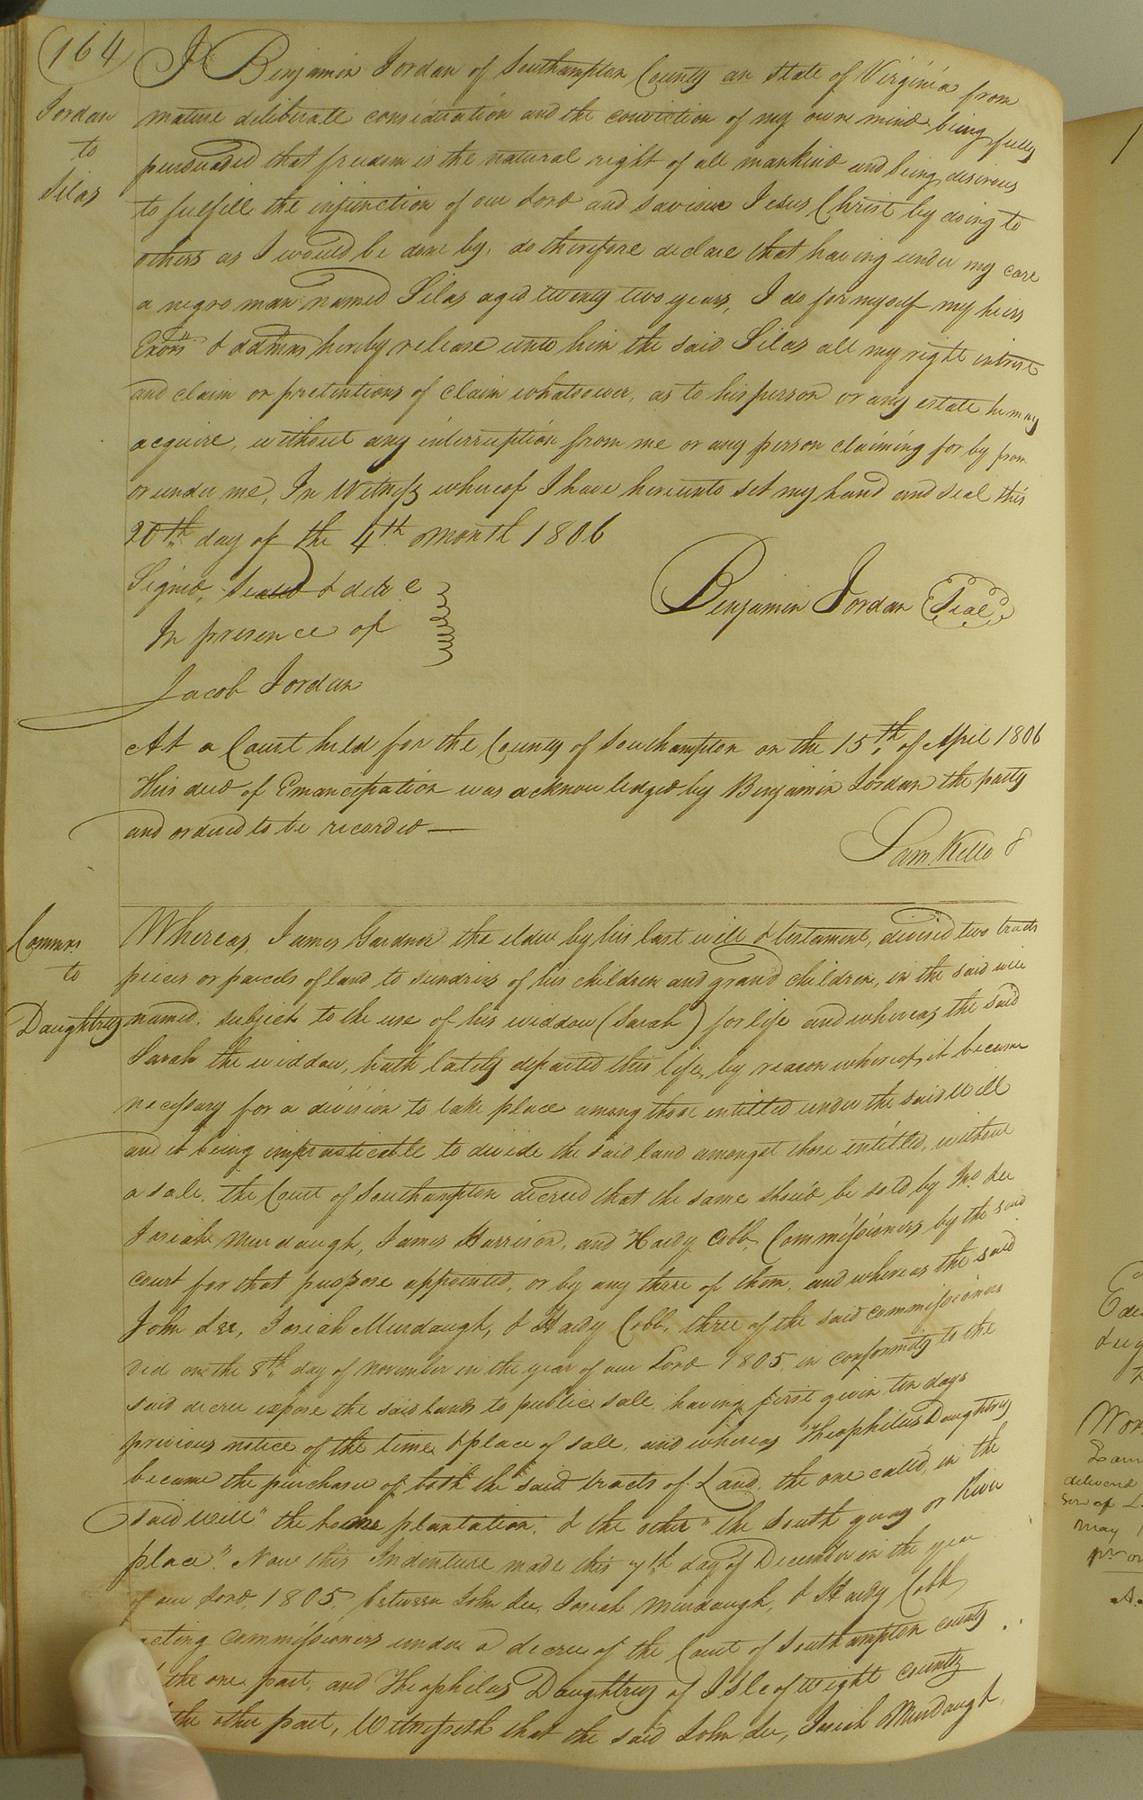 164
Jordan
to
Silas
I Benjamin Jordan of Southampton County an State of Virginia from
mature deliberate consideration and the conviction of my own mind being fully
persuaded that fredom is the natural right of all mankind and being desirous
to fulfill the injunction of our Lord and saviour Jesus Christ by doing to
others as I would be done by, do therefore declare that having under my care
a negro man named Silas aged twenty two years, I do for myself my heirs
Exors & admns hereby release unto him the said Silas all my right intrest
and claim or pretentions of claim whatsoever, as to his person or any estate he may
acquire, without any interruption from me or any person claiming for by from
or under me, In Witness whereof I have hereunto set my hand and seal this
20th day of the 4th month 1806
Signed, Sealed & deld
In presence of
Benjamin Jordan Seal
Jacob Jordan
At a Court held for the County of Southampton on the 15th of April 1806
This deed of Emancipation was acknowledged by Benjamin Jordan the party
and ordered to be recorded
Sam. Kello
Commrs
to
Daughtrey
Whereas, James Gardner the elder by his last will & testament, divised two tracts
pieces or parcels of land to sundries of his children and grand children, in the said will
named, subject to the use of his widdow (Sarah) for life and whereas the said
Sarah the widdow, hath lately departed this life, by reason whereof it became
necessary for a division to take place among those entitled under the said Will
and it being impracticable to divide the said land amongst those entitled, without
a sale, the Court of Southampton decreed that the same should be sold, by Jno Lee
Josiah Murdaugh, James Harrison, and Hardy Cobb, Commissioners by the said
court for that purpose appointed, or by any three of them, and whereas the said
John Lee, Josiah Murdaugh, & Hardy Cobb, three of the said commissioners
did on the 8th day of November in the year of our Lord 1805, in conformity to the
said decree expose the said lands to public sale, having first given ten days
previous notice of the time & place of sale, and whereas Theophilus Daughtrey
became the purchaser of both the said tracts of Land, the one called, in the
said will "the home plantation, & the other "the South quay or River
place". Now this Indenture made this 7th day of December in the year
of our Lord, 1805, between John Lee, Josiah Murdaugh, & Hardy Cobb,
acting commissioners under a decree of the Court of Southampton county
the one part, and Theophilus Daughtrey of Isle of Wight county
the other part, Witnesseth that the said John Lee, Josiah Murdaugh,